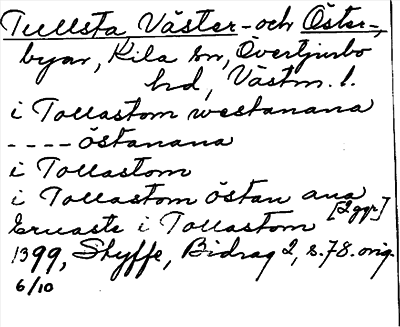 Tullsta, Väster- och Öster-,
byar, Kila sn, Övertjurbo
hd, Västm. l.
i Tollastom westanana
---- östanana
i Tollastom
i Tollastom östan ana
Eruaste i Tollastom [2 ggr]
1399, Styffe, Bidrag 2, s. 78. orig.
6/10